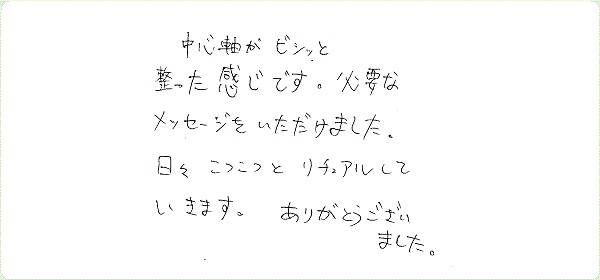 中心軸が ビシッと
整った感じです。必要な
メッセージをいただけました。
日々 こつこつと リチュアルして
いきます。 ありがとうござい
ました。